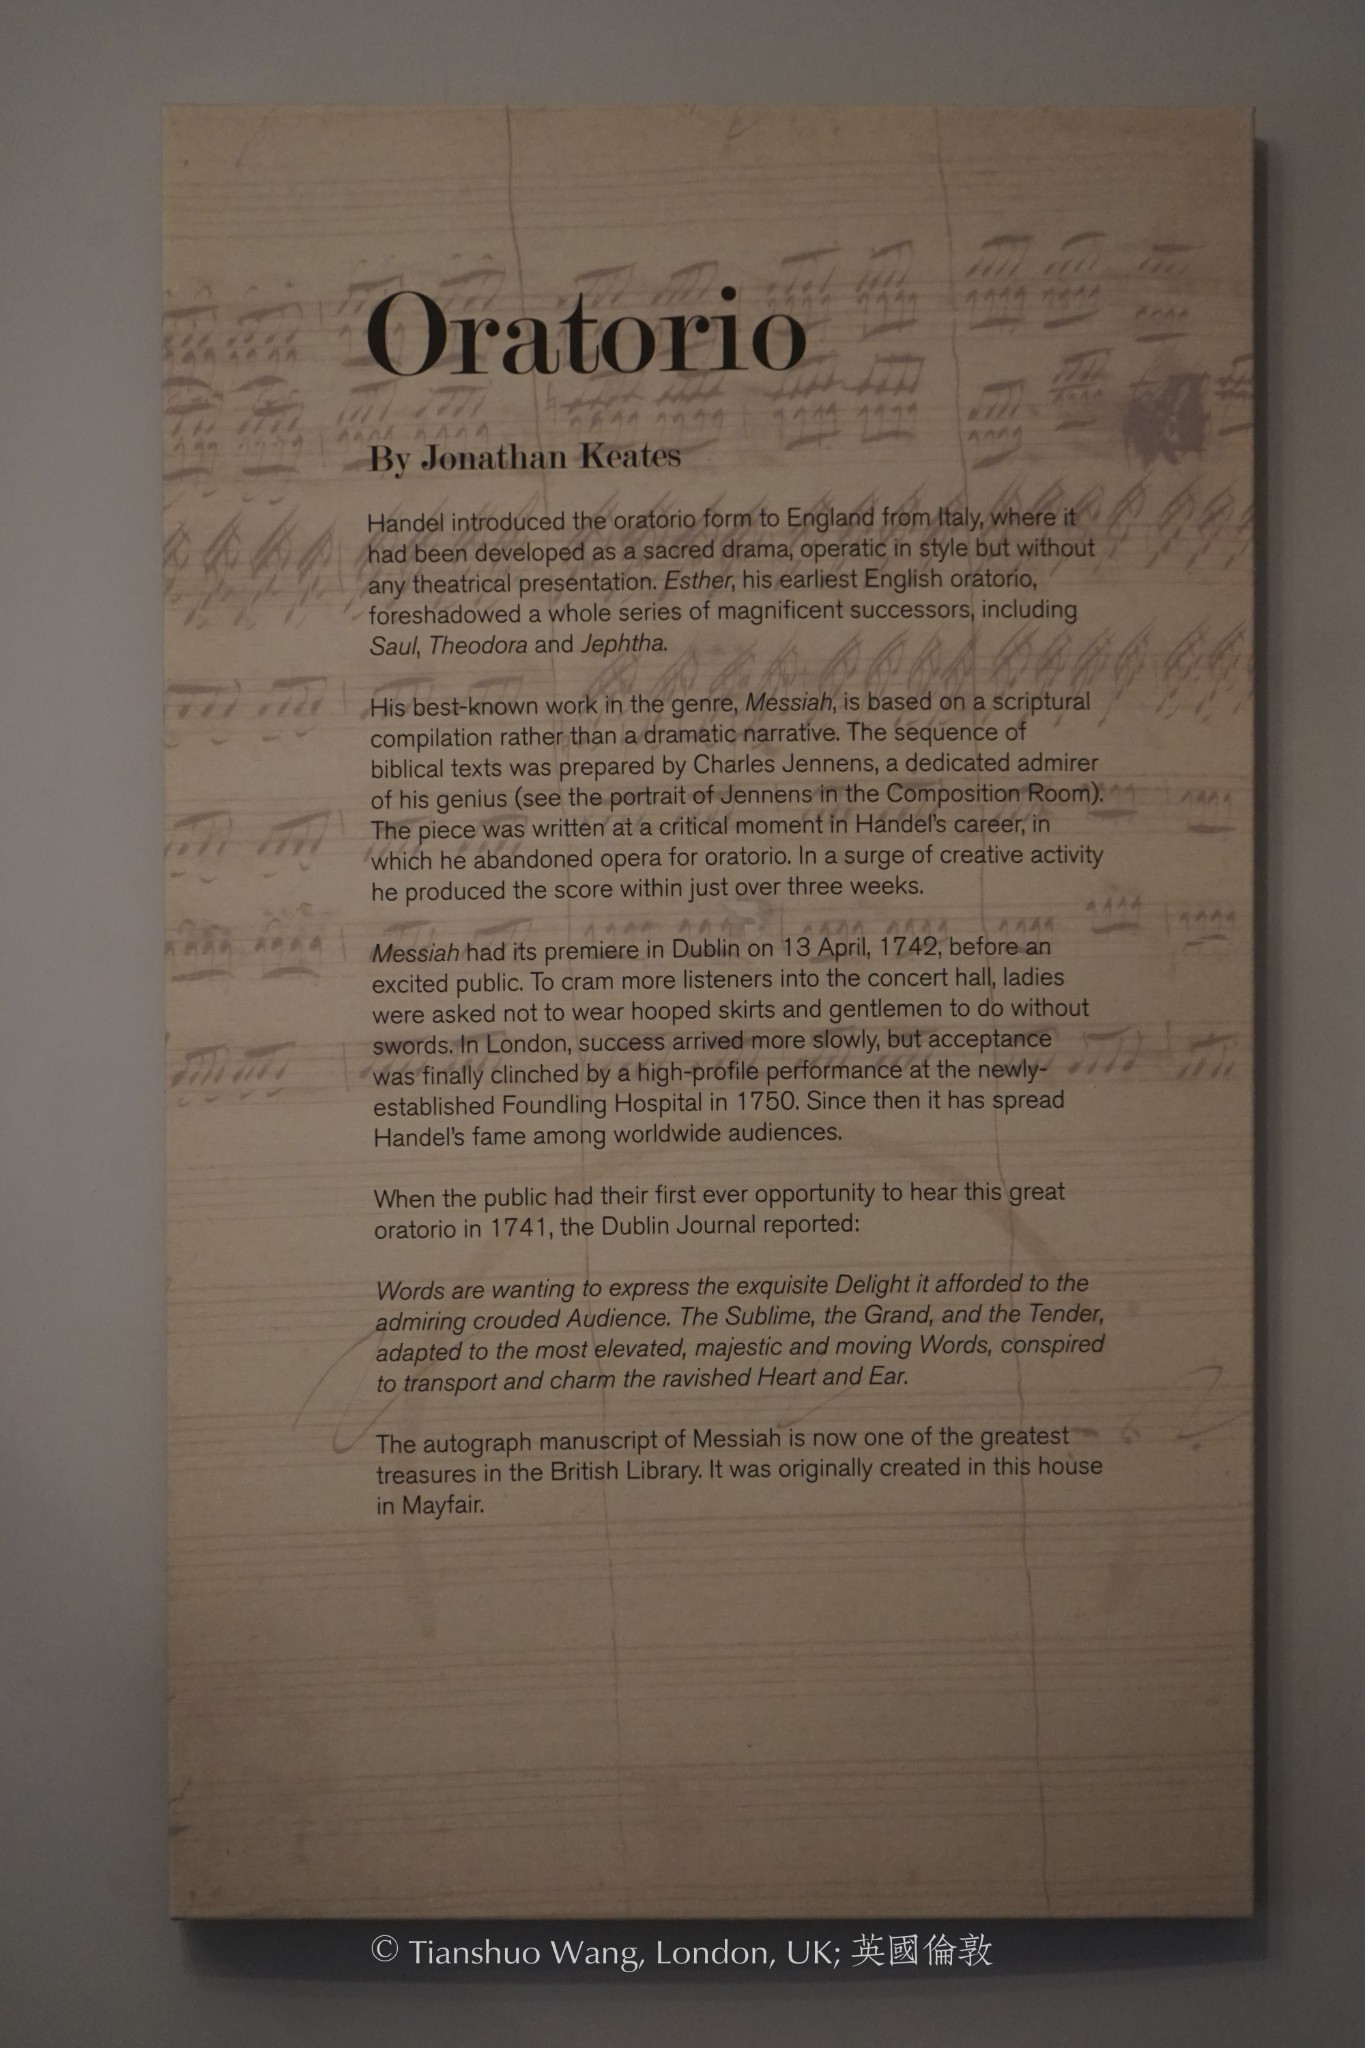 Oratorio
By Jonathan Keates
Handel introduced the oratorio form to England from Italy, where it
had been developed as a sacred drama, operatic in style but without
any theatrical presentation. Esther, his earliest English oratorio,
foreshadowed a whole series of magnificent successors, including
Saul, Theodora and Jephtha.
His best-known work in the genre, Messiah, is based on a scriptural
compilation rather than a dramatic narrative. The sequence of
biblical texts was prepared by Charles Jennens, a dedicated admirer
of his genius (see the portrait of Jennens in the Composition Room).
The piece was written at a critical moment in Handel's career, in
which he abandoned opera for oratorio. In a surge of creative activity
he produced the score within just over three weeks.
Messiah had its premiere in Dublin on 13 April, 1742, before an
excited public. To cram more listeners into the concert hall, ladies
were asked not to wear hooped skirts and gentlemen to do without
swords. In London, success arrived more slowly, but acceptance
was finally clinched by a high-profile performance at the newly-
established Foundling Hospital in 1750. Since then it has spread
Handel's fame among worldwide audiences.
When the public had their first ever opportunity to hear this great
oratorio in 1741, the Dublin Journal reported:
Words are wanting to express the exquisite Delight it afforded to the
admiring crouded Audience. The Sublime, the Grand, and the Tender,
adapted to the most elevated, majestic and moving Words, conspired
to transport and charm the ravished Heart and Ear.
The autograph manuscript of Messiah is now one of the greatest
treasures in the British Library. It was originally created in this house
in Mayfair.
© Tianshuo Wang, London, UK; 英國倫敦